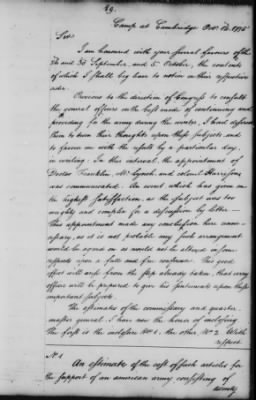 49.
Camp at Cambridge Octr 12th 1775
Sir
I am honoured with your several favours of the
26 and 30 September, and 5 October, the contents
of which I shall beg leave to notice in their respective
order.
Previous to the direction of Congress to consult
the general officers on the best mode of continuing and
providing for the army during the winter, I had desired
them to turn their thoughts upon these subjects and
to favour me with the result by a particular day,
in writing. In this interval the appointment of
Doctor Franklin, Mr Lynch and colonel Harrison
was communicated. An event which has given me
the highest Satisfaction, as the subject was too
weighty and complex for a discussion by letter —
This appointment made any conclusion here unne-
cessary, as it is not probable any such arrangement
would be agreed on as would not be altered in some
respects upon a full and free conference. This good
effect will arise from the step already taken, that every
officer will be prepared to give his sentiments upon these
important subjects.
The estimates of the commissary and quarter
master general, I have now the honor of inclosing
the first is the inclosure No 1, the other No 2. With
respect
No 1
An estimate of the cost of such articles for
the support of an american army consisting of
twenty